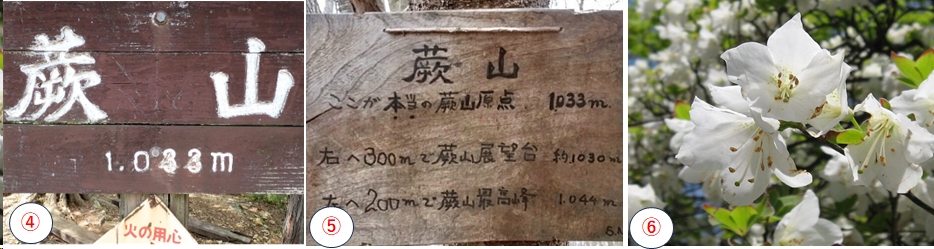 蕨山
1.033m
火の用心
④
蕨 山
ここが本当の蕨山原点 1033m.
右へ300mで蕨山展望台 約1030m
左へ200mで蕨山最高峰 1.044m
⑤
⑥